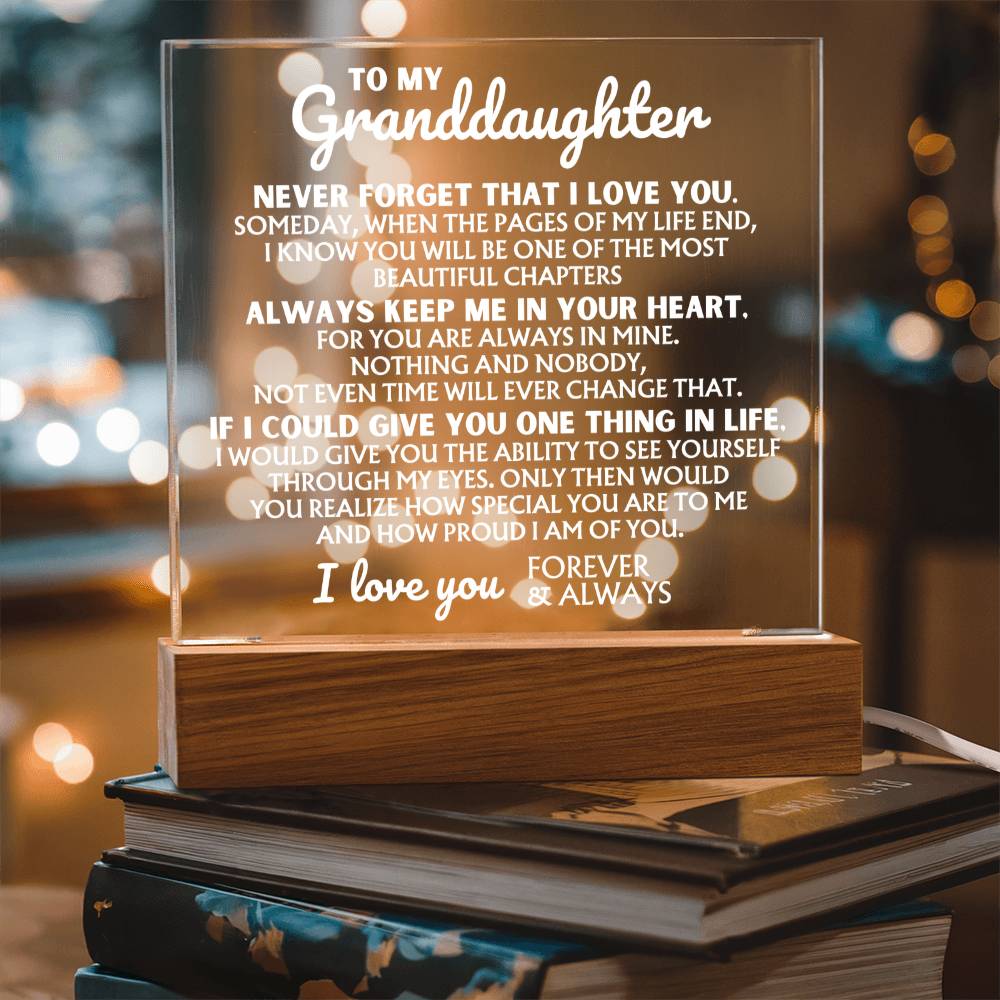 TO MY
Granddaughter
NEVER FORGET THAT I LOVE YOU.
SOMEDAY, WHEN THE PAGES OF MY LIFE END,
I KNOW YOU WILL BE ONE OF THE MOST
BEAUTIFUL CHAPTERS
ALWAYS KEEP ME IN YOUR HEART,
FOR YOU ARE ALWAYS IN MINE.
NOTHING AND NOBODY,
NOT EVEN TIME WILL EVER CHANGE THAT.
IF I COULD GIVE YOU ONE THING IN LIFE,
I WOULD GIVE YOU THE ABILITY TO SEE YOURSELF
THROUGH MY EYES. ONLY THEN WOULD
YOU REALIZE HOW SPECIAL YOU ARE TO ME
AND HOW PROUD I AM OF YOU.
I love you FOREVER
& ALWAYS